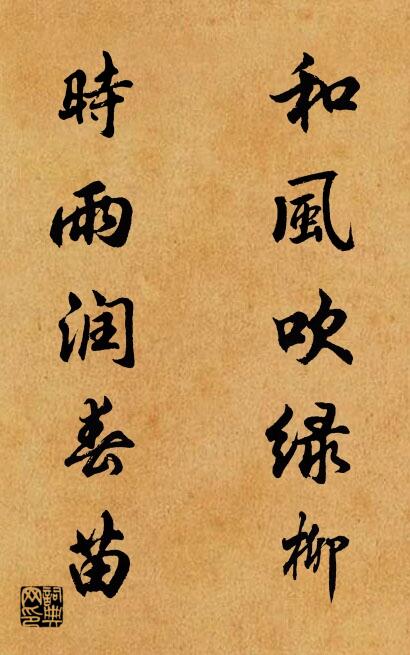 和風吹緑柳
時雨润春苗
詞典网印